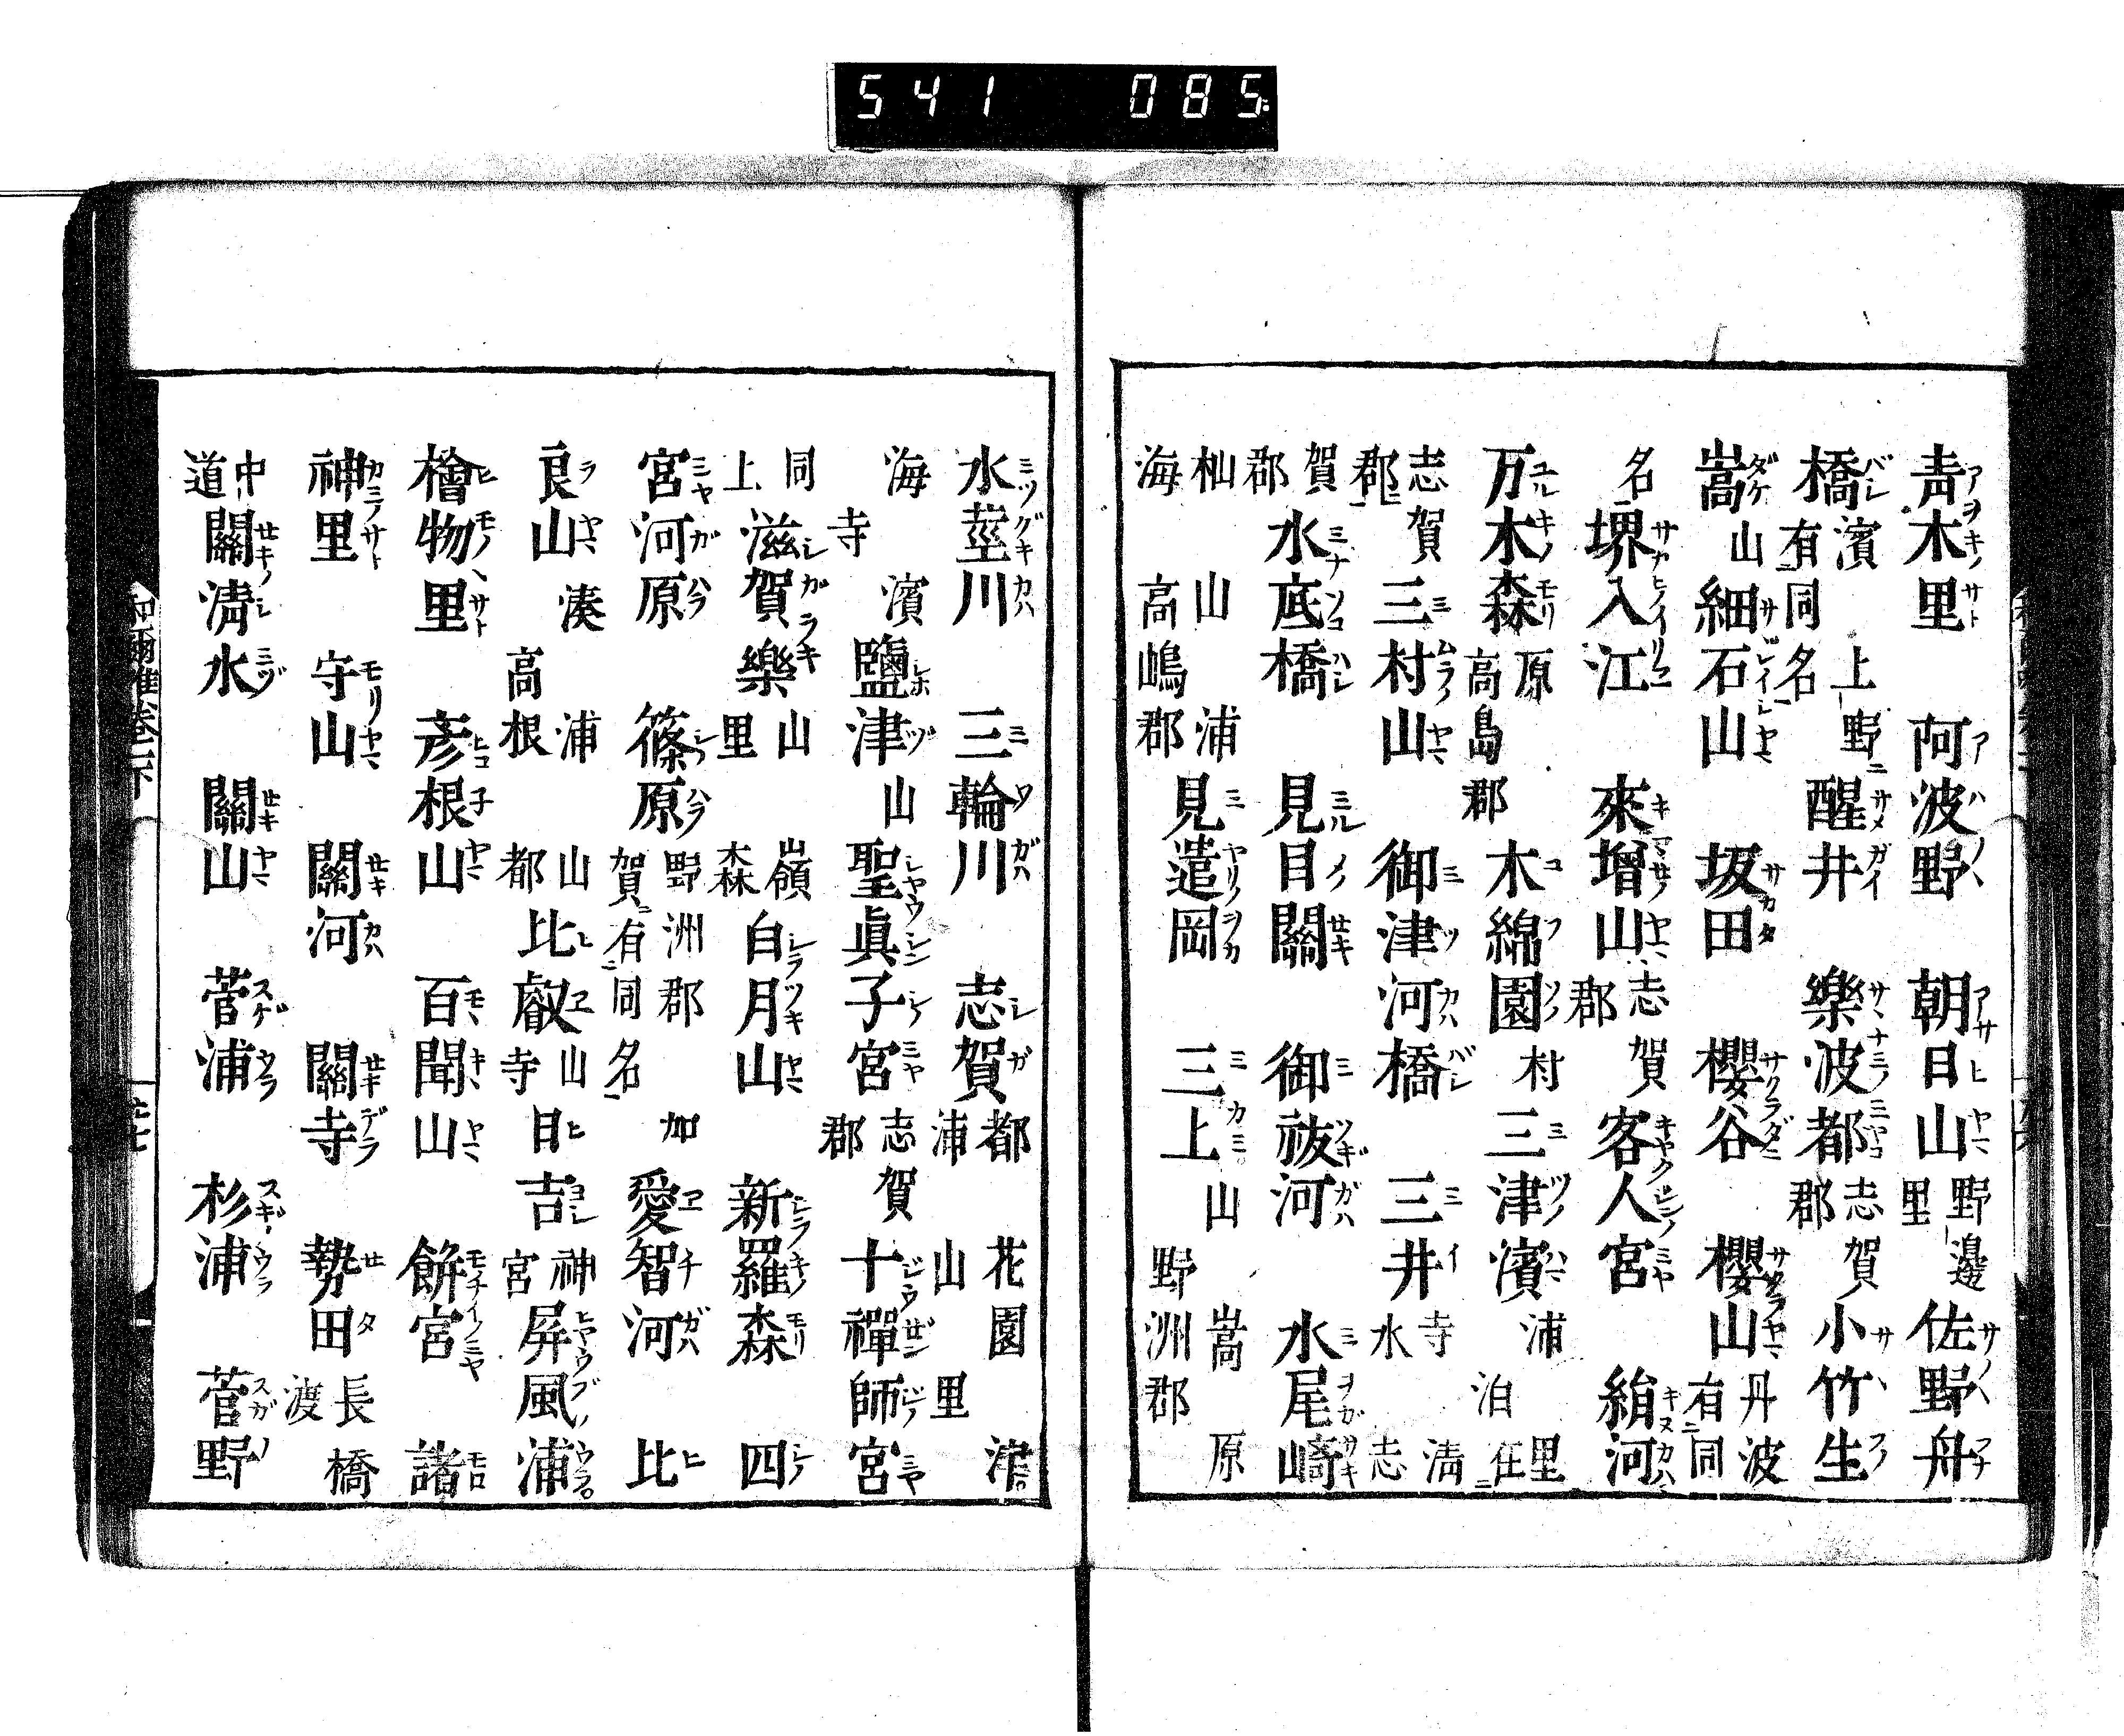 541 085
青木里 阿波野 朝日山 野邊里 佐野舟
橋 濱 上野ニ有同名 醒井 樂波都 志賀郡 小竹生
嵩 山 細石山 坂田 櫻谷 櫻山 丹波ニ有同
名 堺入江 來增山 志賀郡 客人宮 絹河
万木森 高島郡 原 木綿園 村 三津濱 浦 泊 里 在
志賀郡ニ 三村山 御津河橋 三井 寺 水 清 志
賀郡 水底橋 見目關 御祓河 水尾崎
杣山 浦 海 高嶋郡 見遣岡 三上 山 嵩 原 野洲郡
水莖川 三輪川 志賀 都 花園 津 浦 山 里
海 濱 寺 鹽津 山 聖眞子宮 志賀郡 十禪師宮
同上 滋賀樂 山 里 嶺 森 白月山 新羅森 四
宮河原 篠原 野洲郡 賀ニ有同名 加 愛智河 比
良山 湊 浦 高根 山 都 比叡 山 寺 日吉 神 宮 屏風浦
檜物里 彦根山 百聞山 餅宮 諸
神里 守山 關河 關寺 勢田 長橋 渡
中道 關清水 關山 菅浦 杉浦 菅野
和爾雅卷一下